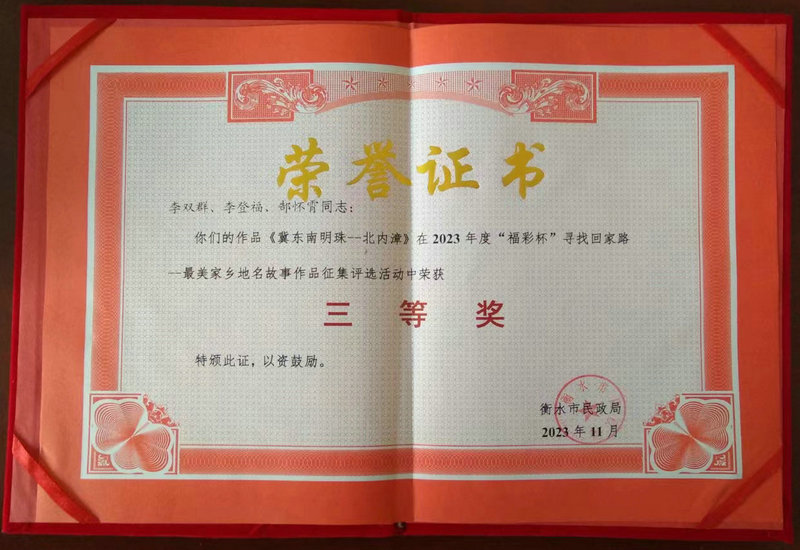 荣誉证书
李双群、李登福、郜怀霄同志：
你们的作品《冀东南明珠--北内漳》在 2023 年度“福彩杯”寻找回家路
--最美家乡地名故事作品征集评选活动中荣获
三等奖
特颁此证，以资鼓励。
衡水市民政局
2023 年 11 月